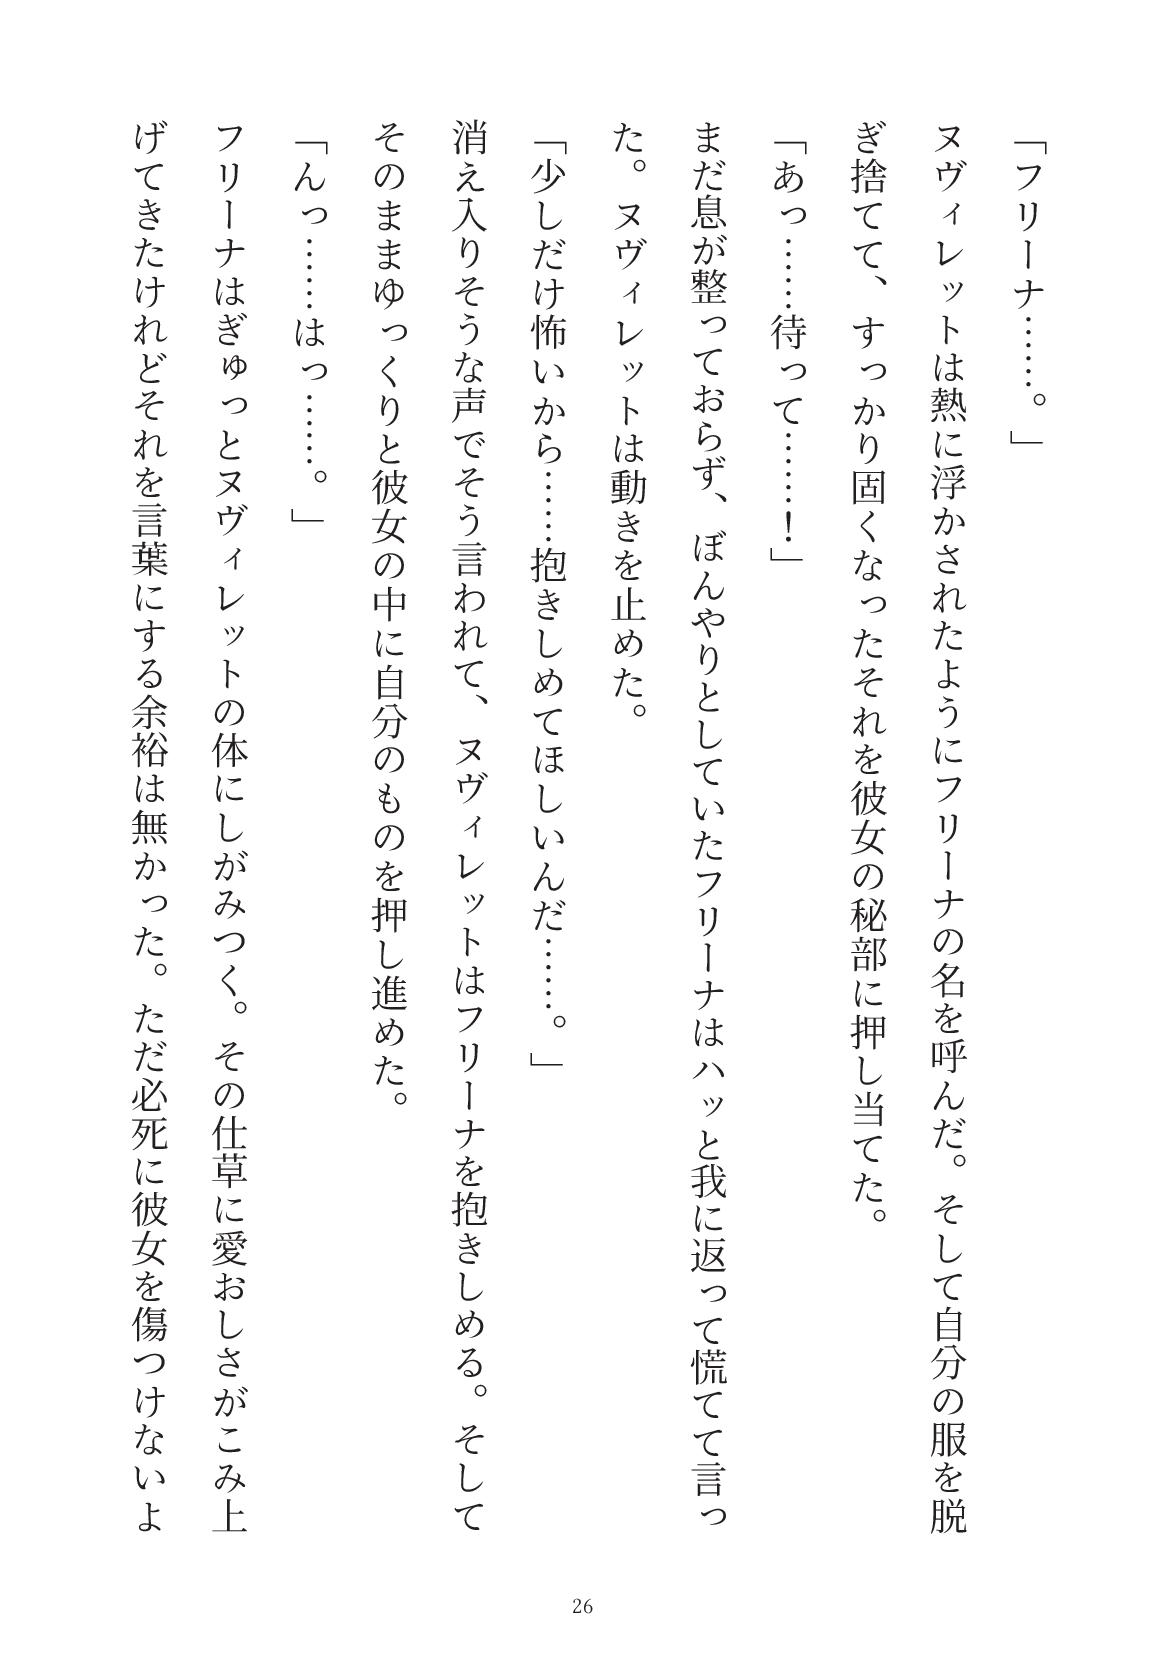 「フリーナ……。」
ヌヴィレットは熱に浮かされたようにフリーナの名を呼んだ。そして自分の服を脱
ぎ捨てて、すっかり固くなったそれを彼女の秘部に押し当てた。
「あっ……待って……！」
まだ息が整っておらず、ぼんやりとしていたフリーナはハッと我に返って慌てて言っ
た。ヌヴィレットは動きを止めた。
「少しだけ怖いから……抱きしめてほしいんだ……。」
消え入りそうな声でそう言われて、ヌヴィレットはフリーナを抱きしめる。そして
そのままゆっくりと彼女の中に自分のものを押し進めた。
「んっ……はっ……。」
フリーナはぎゅっとヌヴィレットの体にしがみつく。その仕草に愛おしさがこみ上
げてきたけれどそれを言葉にする余裕は無かった。ただ必死に彼女を傷つけないよ
26